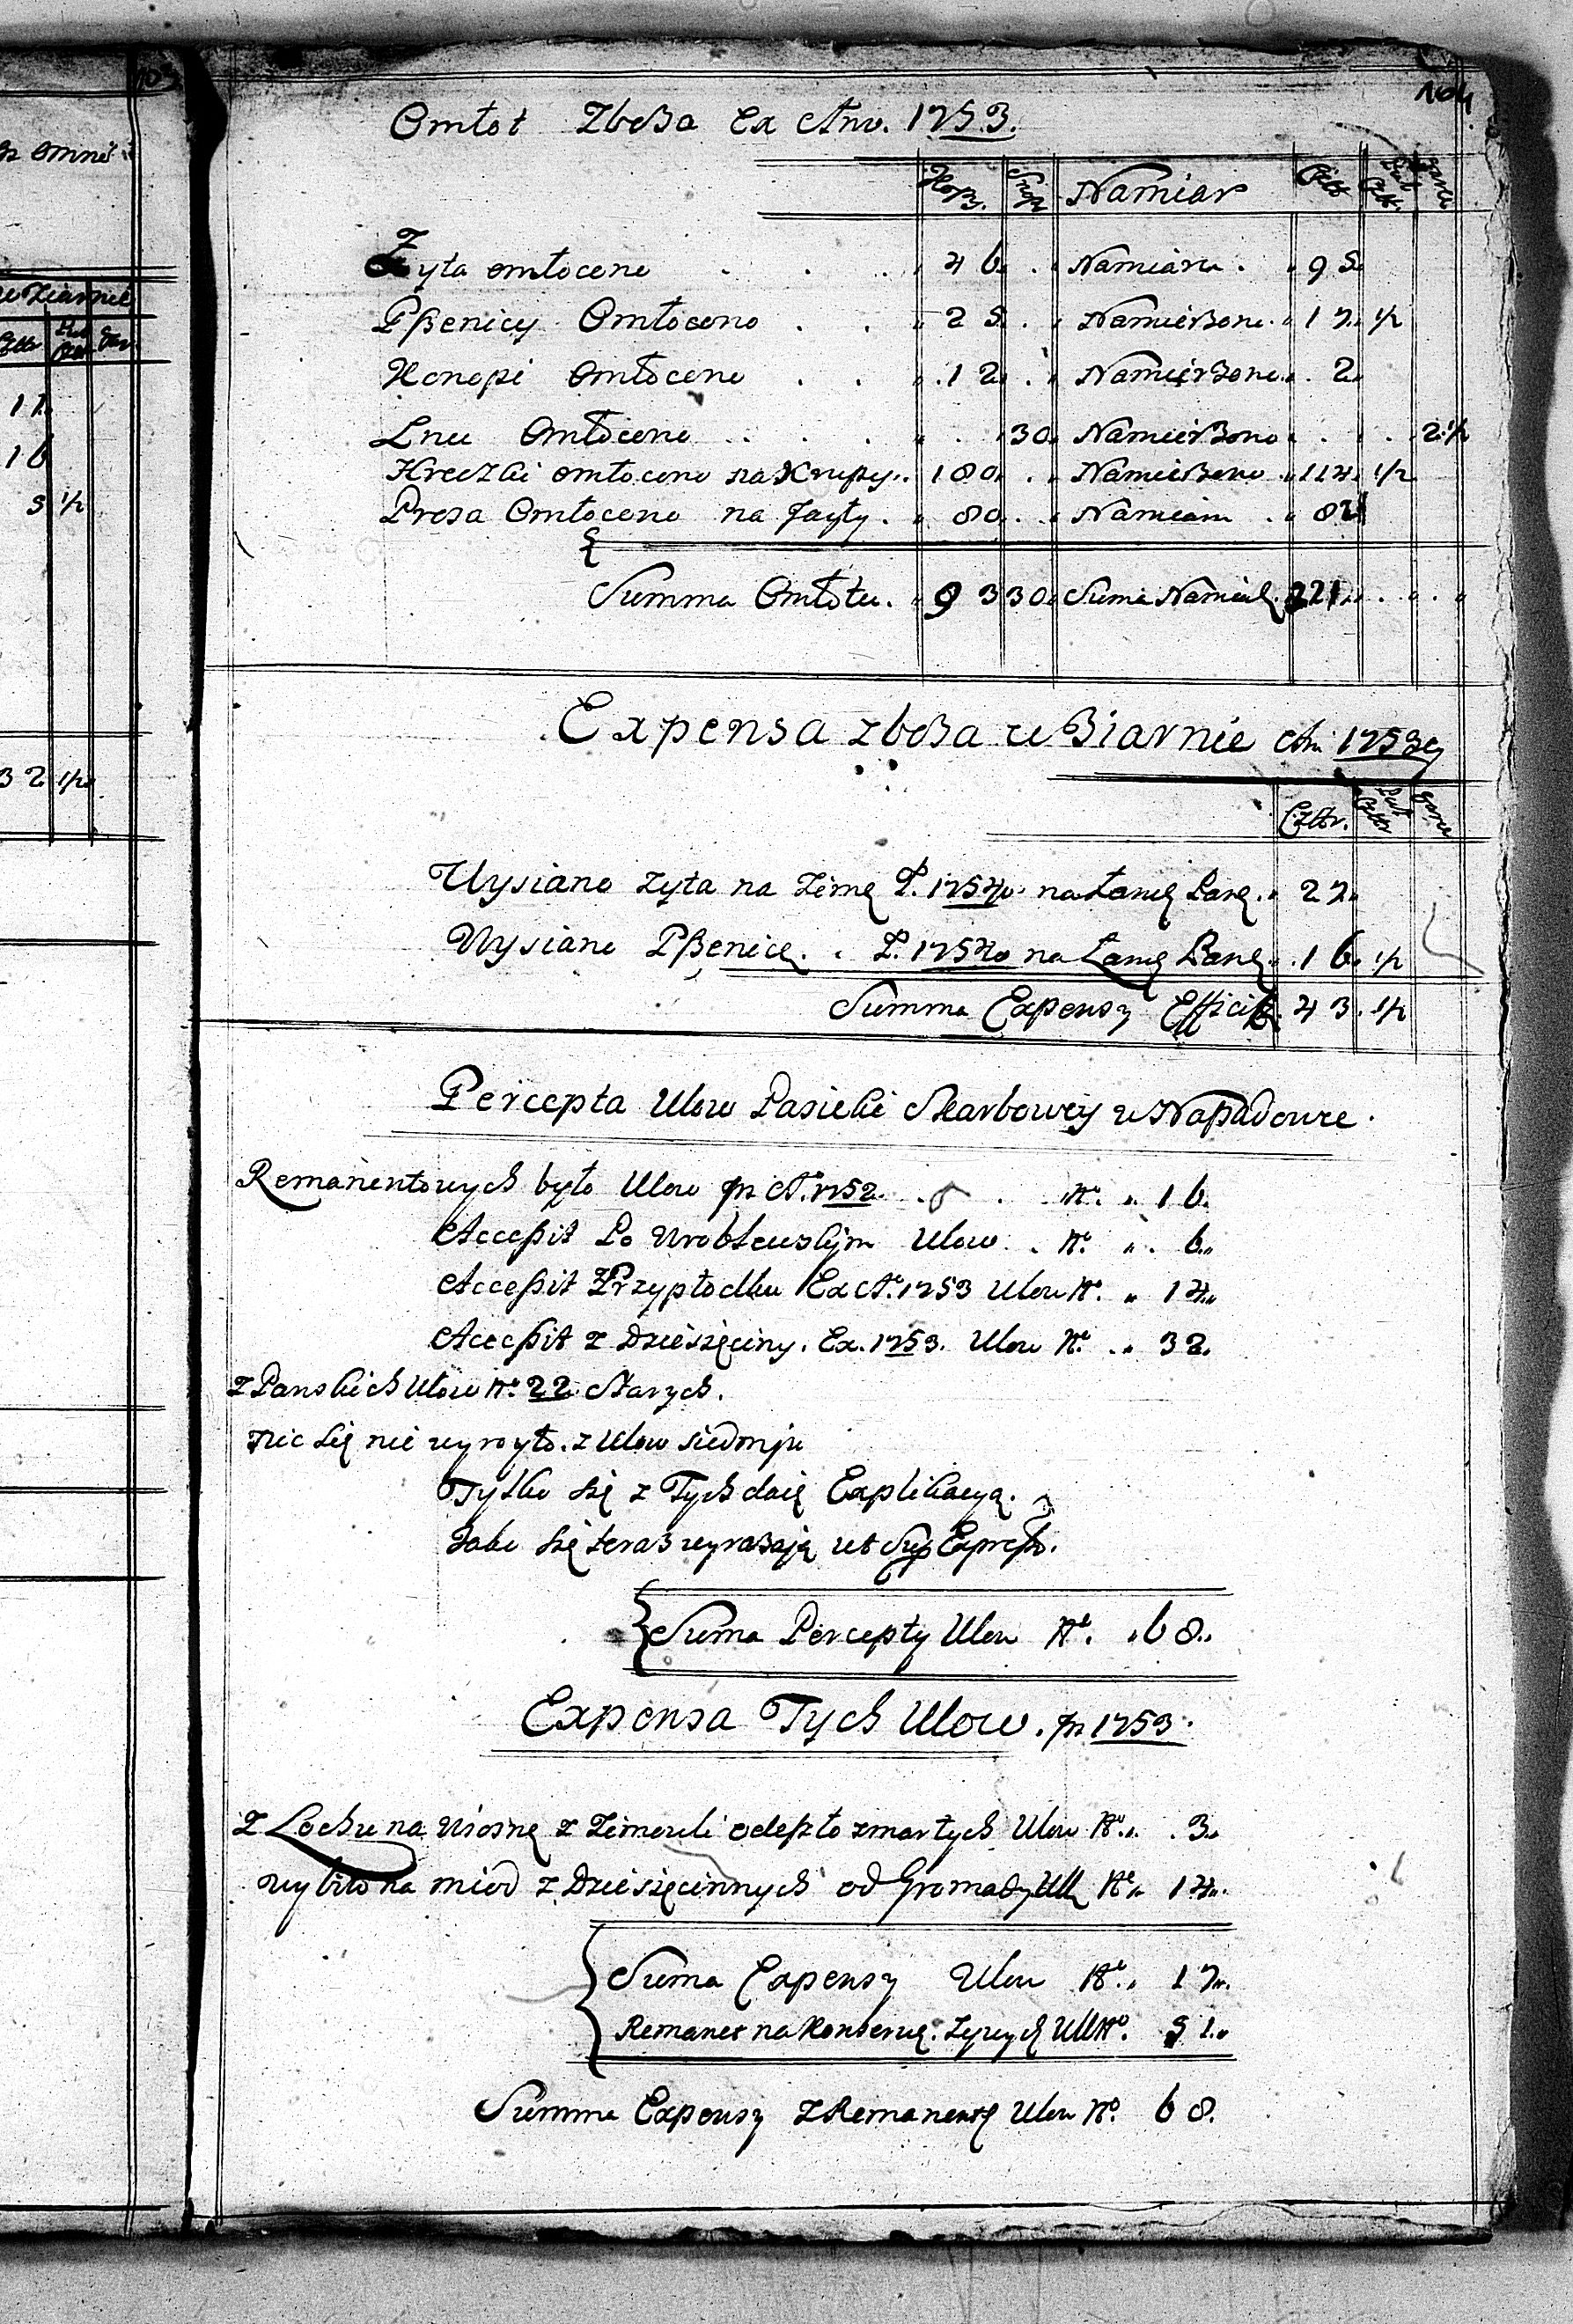 103
omne
w Ziarnie
Cztr Puł Cztr Gar.
11
16
5 1/2
32 1/2
104
Omłot Zboża Ex Ano. 1753.
Kop. Snop Namiar Cztr Puł Cztr. Garcy
Zyta omłocono . . . 46 . Namiaru . 95
Pßenicy Omłocono . . 25 . Namierzono . 17 1/2
Konopi omłocono . . 12 . Namierzono . 2
Lnu Omłocono . . . 30 Namierzono . . . 2 1/2
Hreczki omłocono na Krupy . 180 . Namierzono 114 1/2
Prosa Omłocono na Jagły . 80 . Namiaru . 82
Summa Omłotu . 93 30 Suma Namiaru 221
Expensa zboża w Ziarnie An 1753
Cztr. Puł Cztr Garcy
Wysiano zyta na zimę P. 1754o na Łanę Panę . 27
Wysiano Pßenicę . P. 1754o na Łanę Panę . 16 1/2
Summa Expensy Efficit . 43 1/2
Percepta Ulow Pasieki Skarbowey w Napadowce .
Remanentowych było Ulow pr Ao. 1752 . . No. 16.
Acceßit Po Wroblewskim Ulow . No. 6
Acceßit z Przypłodku Ex Ao. 1753 Ulow No. 14
Acceßit z Dziesięciny . Ex . 1753. Ulow No 32
z Panskich Ulow No. 22 Starych.
nic się nie wyroyło . z Ulow siedmju
Tylko się z Tych daię Explikacyą .
Jako się teraz wyrażają ut Sup Expreß.
Suma Percepty Ulow No. 68
Expensa Tych Ulow . pr 1753 .
Z Lochu na Wiosnę z Zimowli odeßło zmarłych Ulow No. 3
wybito na miod z Dziesięcinnych od Gromady Ull No 14
Suma Expensy Ulow No. 17
Remanet na Konserwę . Zywych Ull No. 51
Summa Expensy z Remanentę Ulow No. 68.